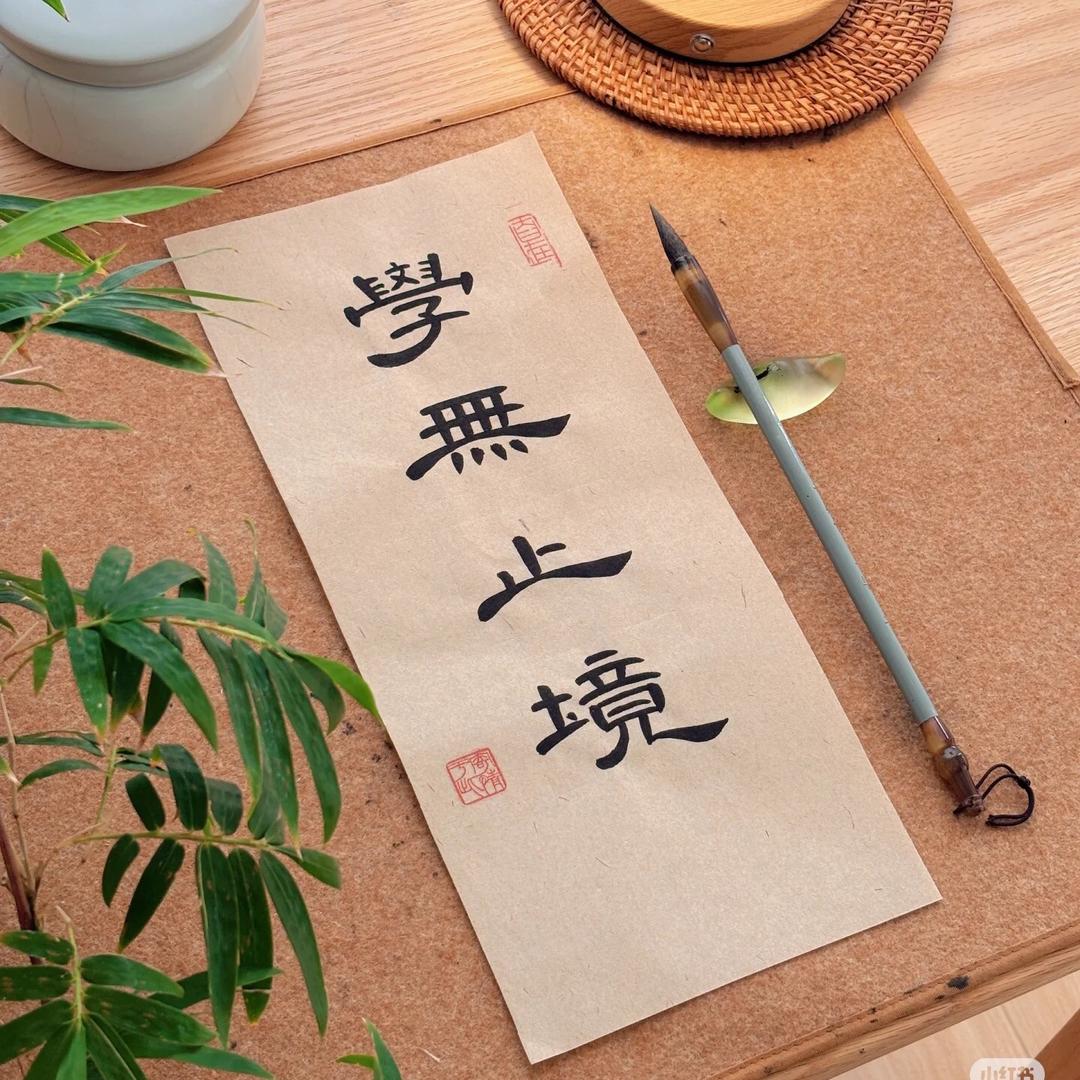 學無止境
小红书